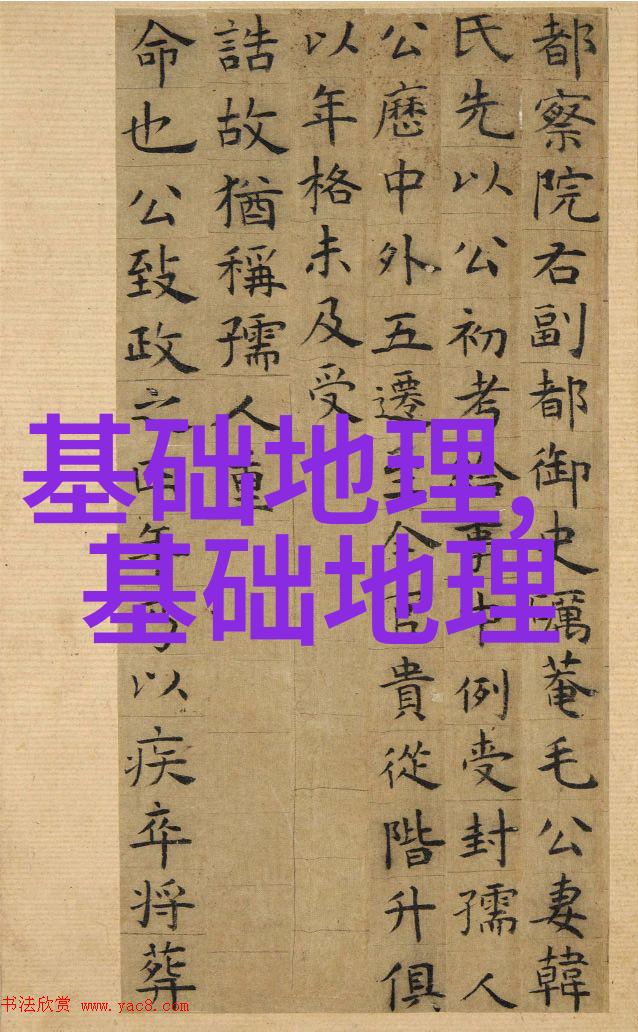 都察院右副都御史礪菴毛公妻韓
氏先以公初考給事中例受封孺人
公歷中外五遷至今官貴從階升俱
以年格未及受
誥故猶稱孺人重
命也公致政之四年乃以疾卒將葬
基础地理,
基础地理
书法欣赏 www.yac8.com